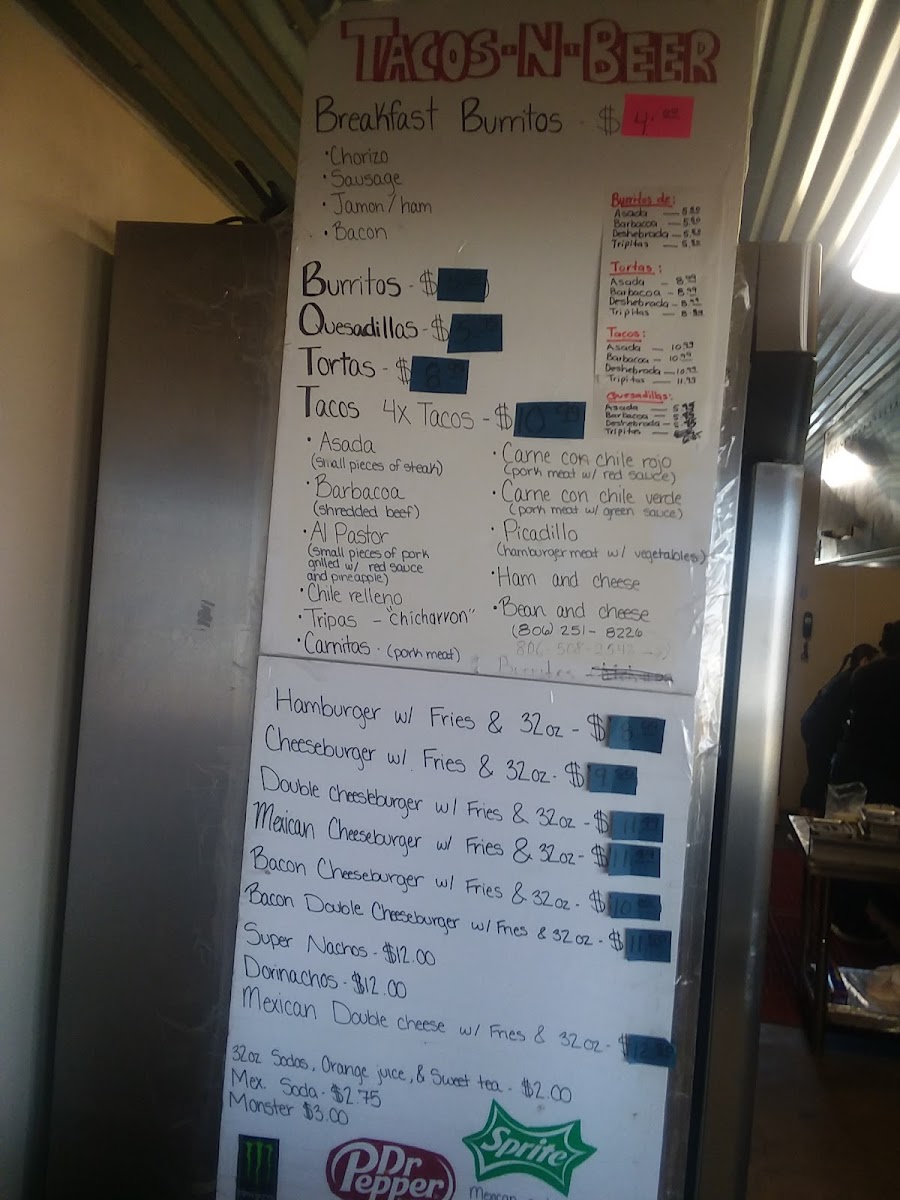 TACOS-N-BEER
Breakfast Burritos - $ 4.99
• Chorizo
• Sausage
• Jamon / ham
• Bacon
Burritos - $
Quesadillas - $
Tortas - $ 8.99
Tacos 4x Tacos - $ 10.99
• Asada
(small pieces of steak)
• Barbacoa
(shredded beef)
• Al Pastor
(small pieces of pork
grilled w/ red sauce
and pineapple)
• Chile relleno
• Tripas - "chicharron"
• Carnitas. (pork meat)
• Carne con chile rojo
(pork meat w/ red sauce)
• Carne con chile verde
(pork meat w/ green sauce)
• Picadillo
(hamburger meat w/ vegetables)
• Ham and cheese
• Bean and cheese
(806) 251-8226
Burritos de:
Asada — 5.89
Barbacoa — 5.
Deshebrada — 5.
Tripitas — 5.
Tortas:
Asada — 8.99
Barbacoa — 8.99
Deshebrada — 8.99
Tripitas — 8.99
Tacos:
Asada — 10.99
Barbacoa — 10.99
Deshebrada — 10.99
Tripitas — 11.99
Quesadillas:
Asada —
Barbacoa —
Deshebrada —
Tripitas —
Hamburger w/ Fries & 32oz - $
Cheeseburger w/. Fries & 32oz. $ 9
Double cheeseburger w/ Fries & 32oz - $ 11.99
Mexican Cheeseburger w/ Fries & 32oz- $ 11.99
Bacon Cheeseburger w/ Fries & 32oz. $ 10
Bacon Double Cheeseburger w/ Fries & 32oz - $ 11
Super Nachos - $12.00
Dorinachos - $12.00
Mexican Double cheese w/ Fries & 32oz- $ 12
32oz Sodas, Orange juice, & Sweet tea - $2.00
Mex. Soda - $2.75
Monster $3.00
Dr Pepper
Sprite
Mexican